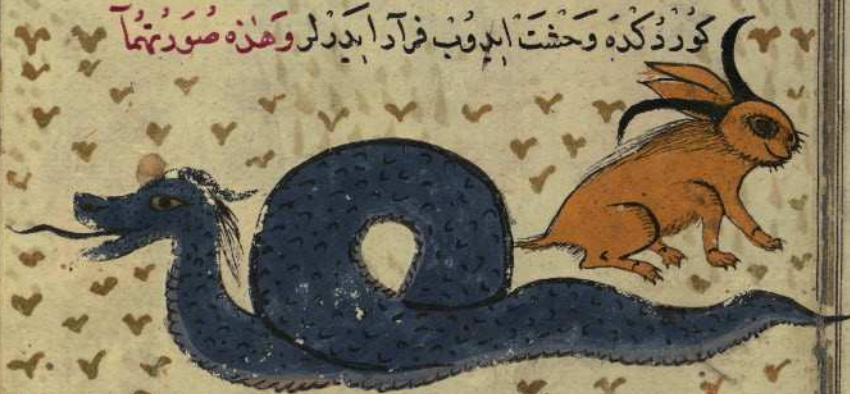 كوردكده وحشت ايدوب فرار ايدرلر وهذه صورتهما